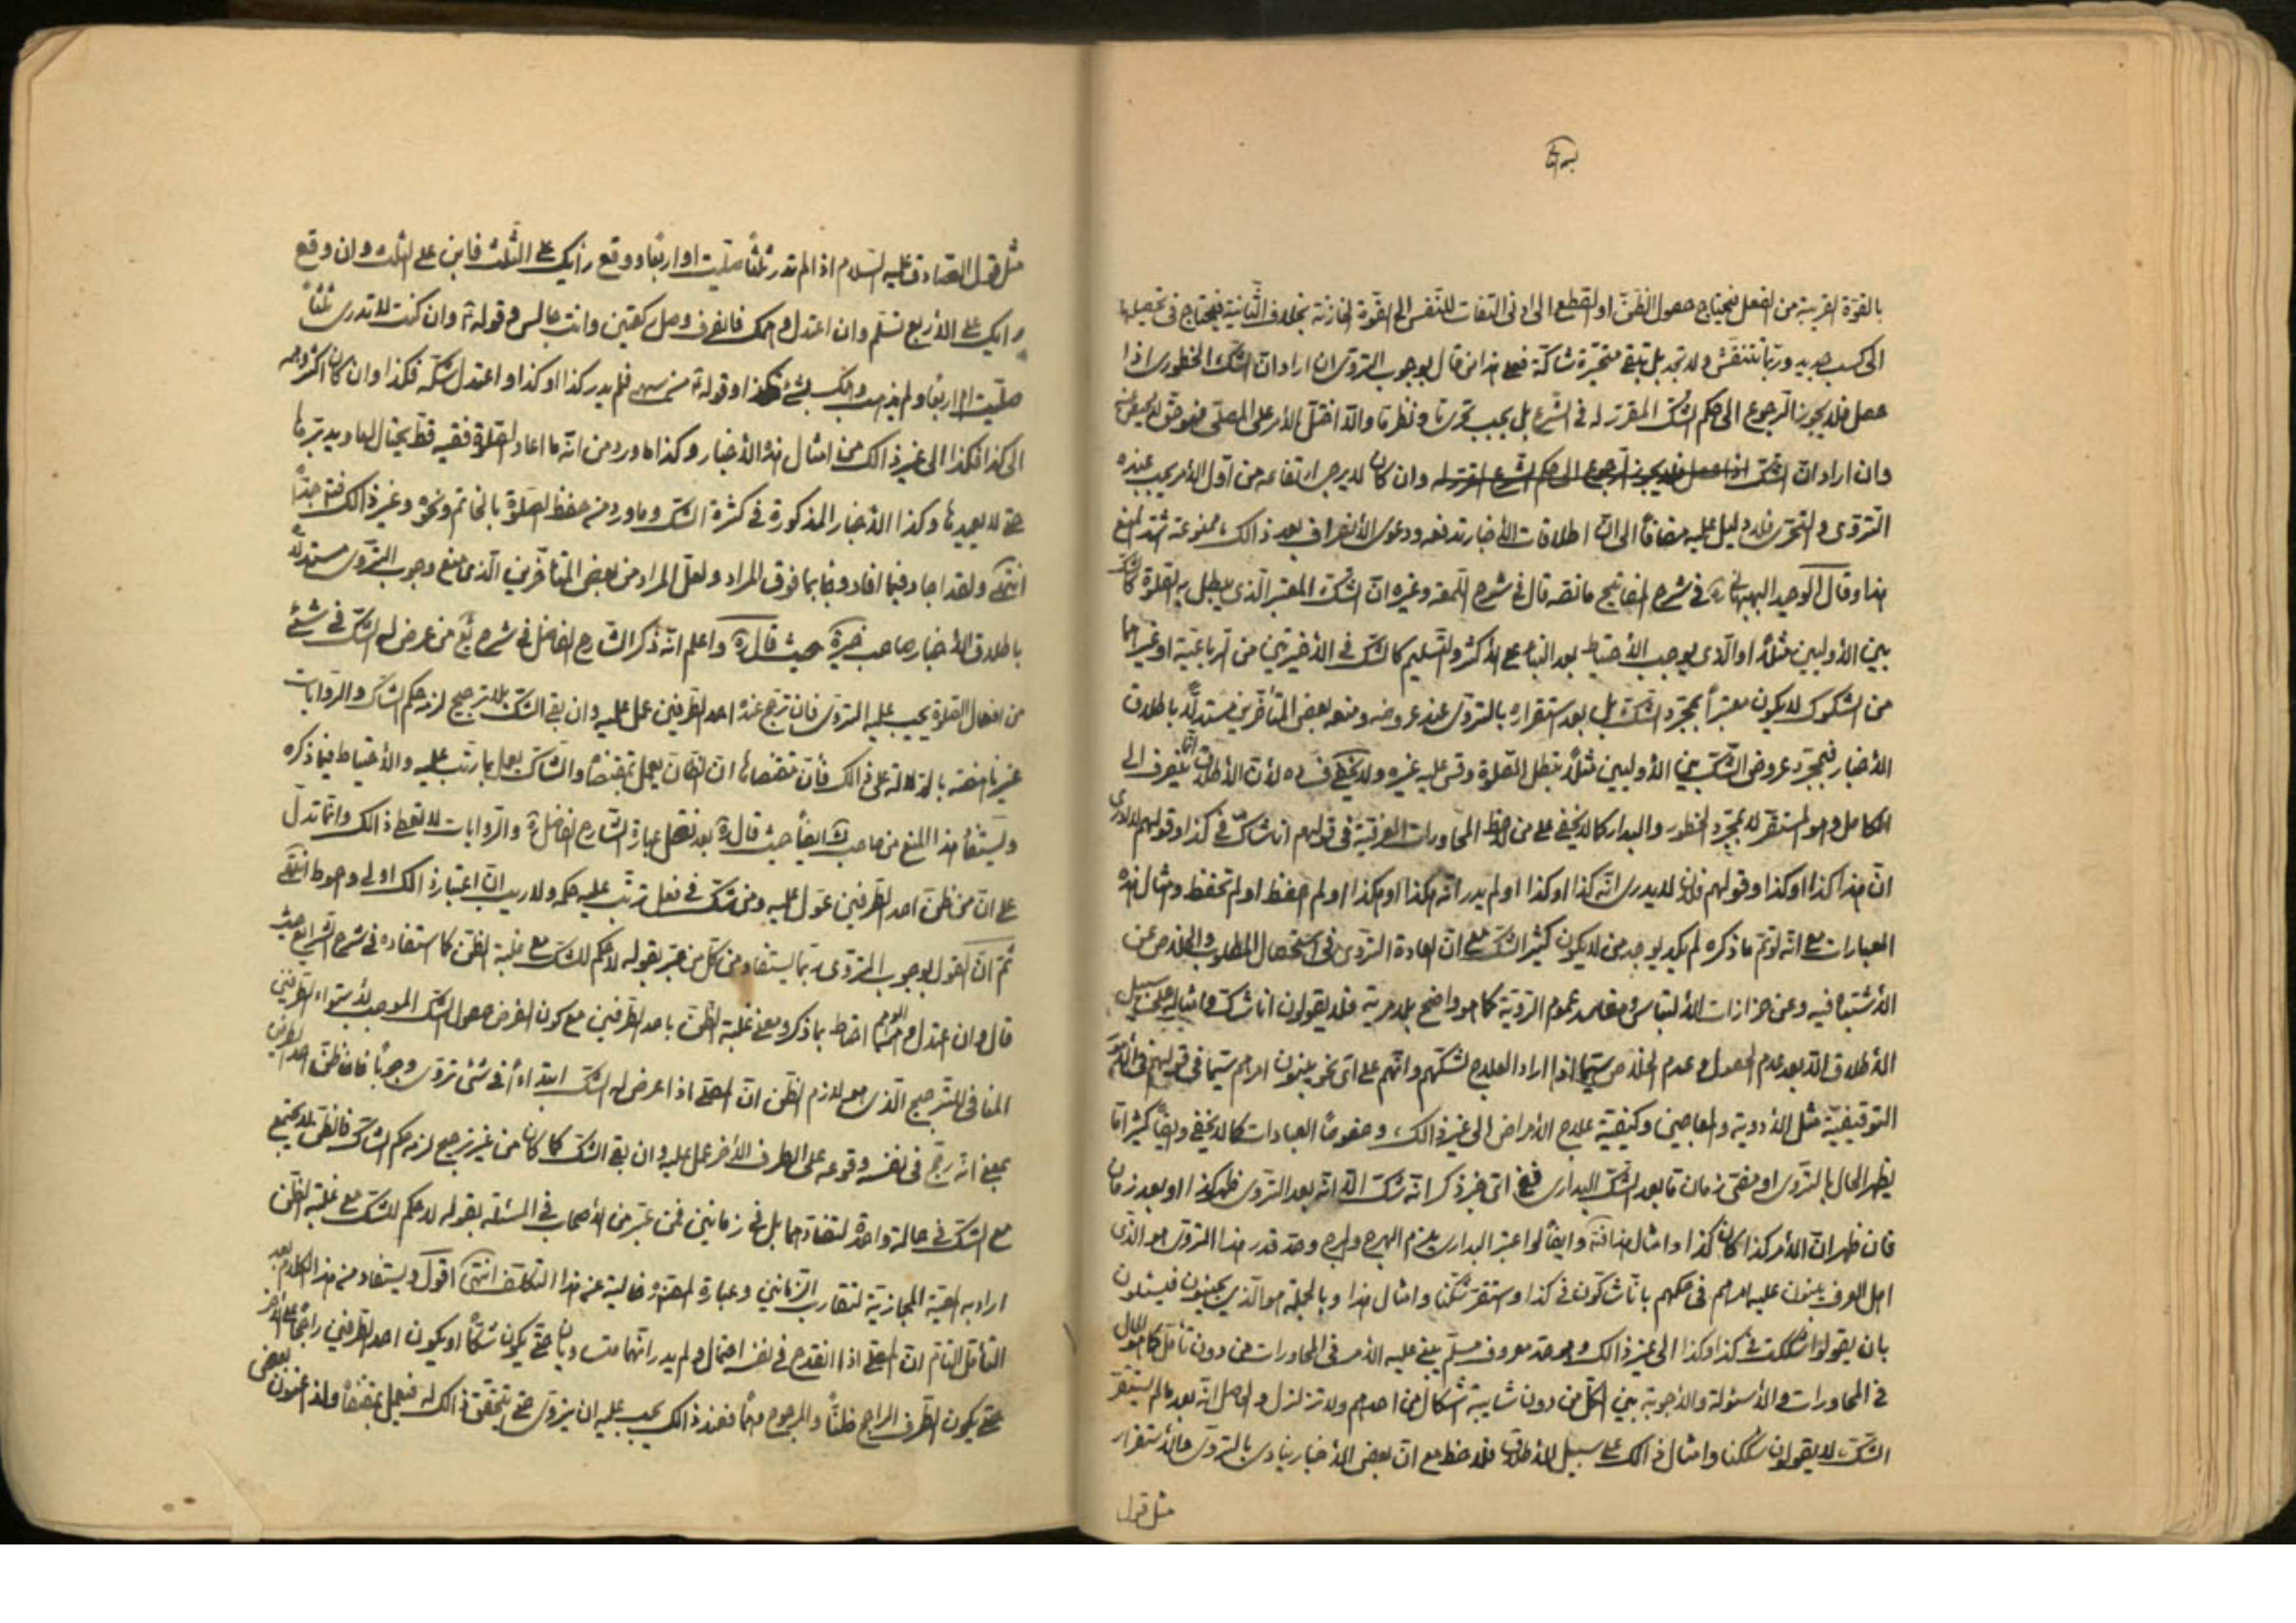 بالقوّة القريبة من الفعل فيحتاج حصول الظنّ او القطع الى ادنى التفات للنّفس الى القوّة الخازنة بخلاف الثّانية فيحتاج فى تحصيلها
الى كسب جديد وربّما تتفحّش ولا تجد بل تبقى متحيّرة شاكّة فعلى هذا من قال بوجوب التروّى ان اراد انّ الشّك الخطورى اذا
حصل فلا يجوز الرجوع الى حكم الشّك المقرّر له فى الشّرع بل يجب تحرّيا ونظرما والّا اختلّ الأمر على المصلّى فهو حقّ لا محيص عنه
وان اراد انّ الشّك اذا حصل فلا يجوز الرجوع الى حكم الشرع المقرّر له وان كان لا يرجى ارتفاعه من اوّل الأمر يجب عنده
التروّى والتحرّى فلا دليل عليه مضافاً الى انّ اطلاقات الأخبار تدفعه ودعوى الأنصراف بعد ذالك ممنوعة اشد المنع
هذا وقال الوحيد البهبهانى ره فى شرح المفاتيح ما نصّه قال فى شرح اللّمعة وغيره انّ الشّك المعتبر الّذى يبطل به الصّلوة كالشّك
بين الأوليين مثلاً او الّذى يوجب الأحتياط بعد البناء على الأكثر والتّسليم كالشّك فى الأخيرتين من الرّباعيّة او غيرهما
من الشكوك لا يكون معتبراً بمجرّد الشّك بل بعد استقراره بالتروّى عند عروضه ومنعه بعض المتأخّرين مستدلّاً باطلاق
الأخبار فبمجرّد عروض الشّك بين الأوليين مثلاً تبطل الصّلوة وقس عليه غيره ولا يخفى فساده لأنّ الأطلاق انّما ينصرف الى
الكامل وهو المستقرّ لا بمجرّد الخطور والبدار كما لا يخفى على من لاحظ المحاورات العرفيّة فى قولهم انا شاكّ فى كذا وقولهم لا ادرى
انّ هذا كذا او كذا وقولهم فلان لا يدرى انّه كذا او كذا او لم يدر انّه هكذا او هكذا او لم احفظ او لم تحفظ وامثال هذه
العبارات مع انّه لو تمّ ما ذكره لم يكد يوجد من لا يكون كثير الشّك مع انّ العادة التروّى فى استحصال المطلوب والخلاص عن
الأشتباه فيه وعن حزازات الألتباس ومفاسد عموم الرّويّة كما هو واضح بلا مرية فلا يقولون انا شاكّ وامثاله على سبيل
الأطلاق الّا بعد عدم الحصول وعدم الخلاص سيّما اذا اراد العلاج لشكّهم وانّهم على اىّ نحو يبنون امرهم سيّما فى قولهم فى الأمور
التوقيفيّة مثل الأدوية والمعاجين وكيفيّة علاج الأمراض الى غير ذالك وخصوصاً العبادات كما لا يخفى وايضاً كثيراً ما
يظهر الحال بالتروّى او مضىّ زمان ما بعد الشّك البدارى فيخبر انّه شكّ الّا انّه بعد التروّى ظهر كذا او بعد زمان
فان ظهر انّ الأمر كذا كان كذا وامثال هذا فتأمّل وايضاً لو اعتبر البدارى يلزم الهرج والمرج وحدّ قدر هذا التروّى هو الّذى
اهل العرف يبنون عليه امرهم فى حكمهم بانّا شاكّون فى كذا واستقرّ شكّنا وامثال هذا وبالجملة هو الّذين يجيبون فيسئلون
بان يقولوا شككت فى كذا وكذا الى غير ذالك وهو حدّ معروف مسلّم يبنى عليه الأمر فى المحاورات من دون تأمّل كما هو الحال
فى المحاورات والأسئولة والأجوبة بين الكلّ من دون شايبة اشكال من احدهم ولا تزلزل والحاصل انّه بعد ما لم يستقرّ
الشّك لا يقولون شككنا وامثال ذالك على سبيل الأطلاق فلاحظ مع انّ بعض الأخبار ينادى بالتروّى والأستقرار
مثل قول
مثل قول الصّادق عليه السّلام اذا لم تدر ثلثاً صلّيت او اربعاً ووقع رأيك على الثّلث فابن على الثّلث وان وقع
رأيك على الأربع فسلّم وان اعتدل وهمك فانصرف وصلّ ركعتين وانت جالس وقوله ع وان كنت لا تدرى ثلثاً
صلّيت ام اربعاً ولم يذهب وهمك الى شئ فكذا وقوله ع من سهى فلم يدر كذا او كذا واعتدل شكّه فكذا وان كان اكثر وهمه
الى كذا فكذا الى غير ذالك من امثال هذه الأخبار وكذا ما ورد من انّه ما اعاد الصّلوة فقيه قطّ يحتال لها ويدبّرها
حتّى لا يعيدها وكذا الأخبار المذكورة فى كثرة الشّك وما ورد منه حفظ الصّلوة بالخاتم ونحوه وغير ذالك فتتبّع جدّاً
انتهى ولقد اجاد فيما افاد وجاء بما فوق المراد ولعلّ المراد من بعض المتأخّرين الّذى منع وجوب التروّى مستدلّاً
باطلاق الأخبار صاحب الذخيرة حيث قال ره واعلم انّه ذكر الشّارح الفاضل فى شرح يع من عرض له الشّك فى شئ
من افعال الصّلوة يجب عليه التروّى فان ترجّح عنده احد الطّرفين عمل عليه وان بقى الشّك بلا ترجيح لزمه حكم الشّاك والرّوايات
غير ناهضة بالدّلالة على ذالك فأنّ مقتضاها انّ الظّان يعمل بمقتضاه والشّاك يعمل بما رتّب عليه والأحتياط فيما ذكره
ويستفاد هذا المنع من صاحب ك ايضاً حيث قال ره بعد نقل عبارة الشّارح الفاضل ره والرّوايات لا تعطى ذالك وانّما تدلّ
على انّ من ظنّ احد الطّرفين عوّل عليه ومن شكّ فى فعل ترتّب عليه حكمه ولا ريب انّ اعتبار ذالك اولى واحوط انتهى
ثمّ انّ القول بوجوب التروّى ربّما يستفاد من كلّ من عبّر بقوله لا حكم للشّك مع غلبة الظّن كما استفاده فى شرح الشّرايع حيث
قال وان اعتدل الوهم احتاط بما ذكر ومعنى غلبة الظّن باحد الطّرفين مع كون الفرض حصول الشّك الموجب لأستواء الطّرفين
المنافى للتّرجيح الّذى هو لازم الظّن انّ المصلّى اذا عرض له الشّك ابتداءً فى شئ تروّى وجوباً فان ظنّ احد الطرفين
بمعنى انّه رجّح فى نفسه وقوعه على الطرف الأخر عمل عليه وان بقى الشّك كما كان من غير ترجيح لزمه حكم الشّاك فالظنّ لا يجتمع
مع الشّك فى حالة واحدة لتضادّهما بل فى زمانين فمن عبّر من الأصحاب فى المسئلة بقوله لا حكم للشّك مع غلبة الظّن
اراد به المعيّة المجازيّة لتقارب الزّمانين وعبارة المصنّف خالية عن هذا التكلّف انتهى اقول ويستفاد من هذا الكلام بعد
التأمّل التّام انّ المصلّى اذا انقدح فى نفسه احتمال ولم يدر انّهما متساويان حتّى يكون شكّاً او يكون احد الطّرفين راجحاً على الأخر
حتّى يكون الطّرف الراجح ظنّاً والمرجوح وهماً فعند ذالك يجب عليه ان يتروّى حتّى يتحقّق ذالك له فيعمل بمقتضاه ولذا عنون بعض